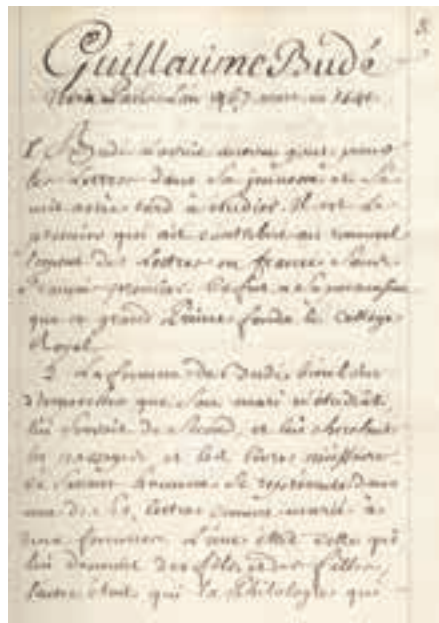 Guillaume Budé
Né à Paris l'an 1467 mort en 1540
1 Budé n'avoit aucun gout pour
les Lettres dans sa jeunesse et se
mit assez tard à etudier. Il est le
premier qui ait contribué au renouvel
lement des Lettres en france sous
françois premier. Ce fut à sa persuasion
que ce grand Prince fonda le College
Royal
2 La femme de Budé, bien loin
d'empecher que son mari n'étudiât,
lui servoit de second, et lui cherchoit
les passages et les livres
Ce savant homme se represente dans
une de ses lettres comme marié à
deux femmes. L'une étoit celle qui
lui donnoit des fils et des filles,
l'autre étoit la Philologie qui